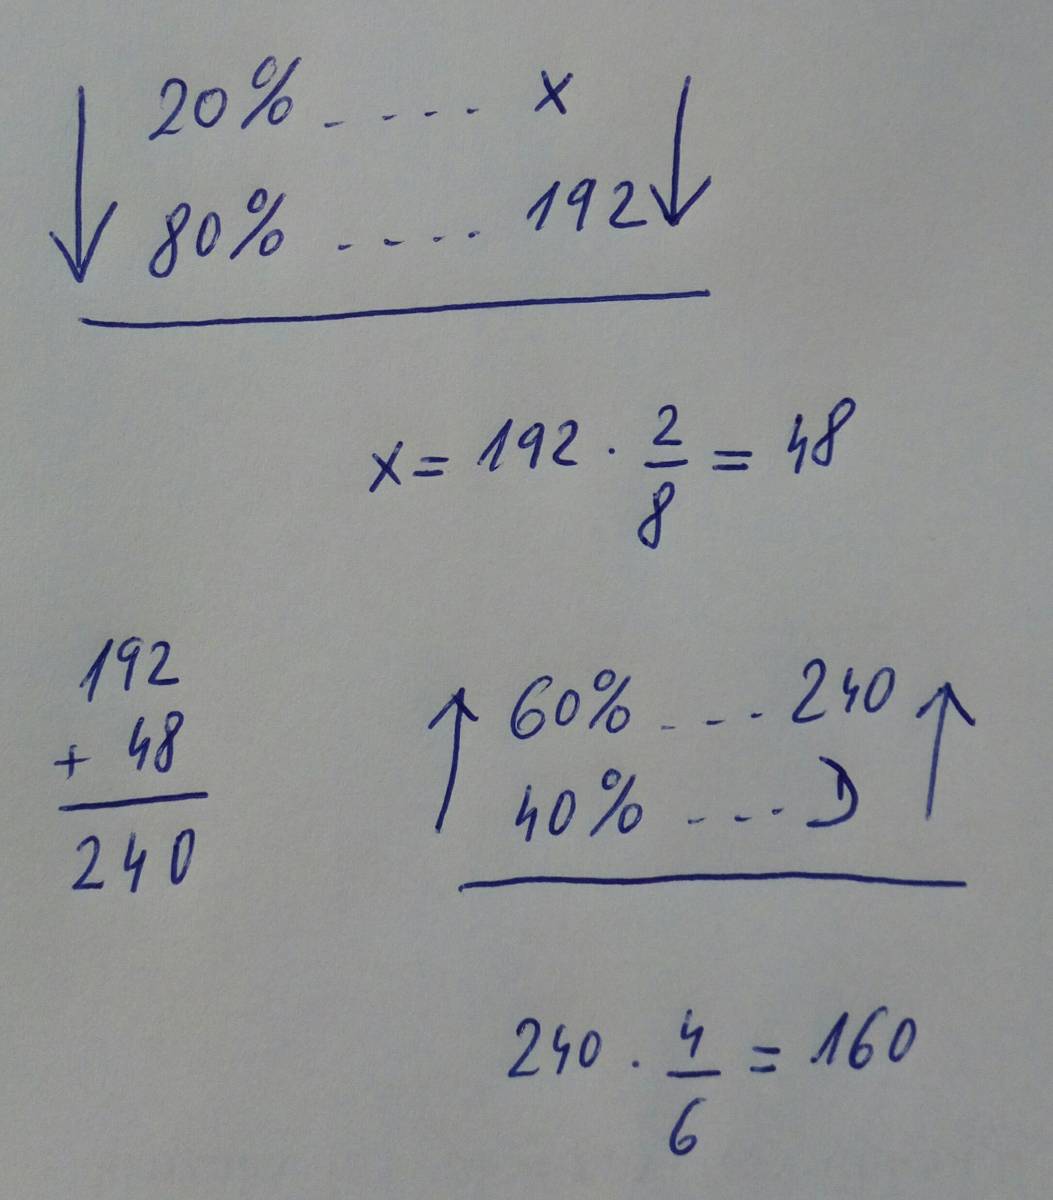 20% - - - - x
80% - - - - 192
x = 192 · 2/8 = 48
192
+ 48
240
60% - - - 240
40% - - - D
240 · 4/6 = 160